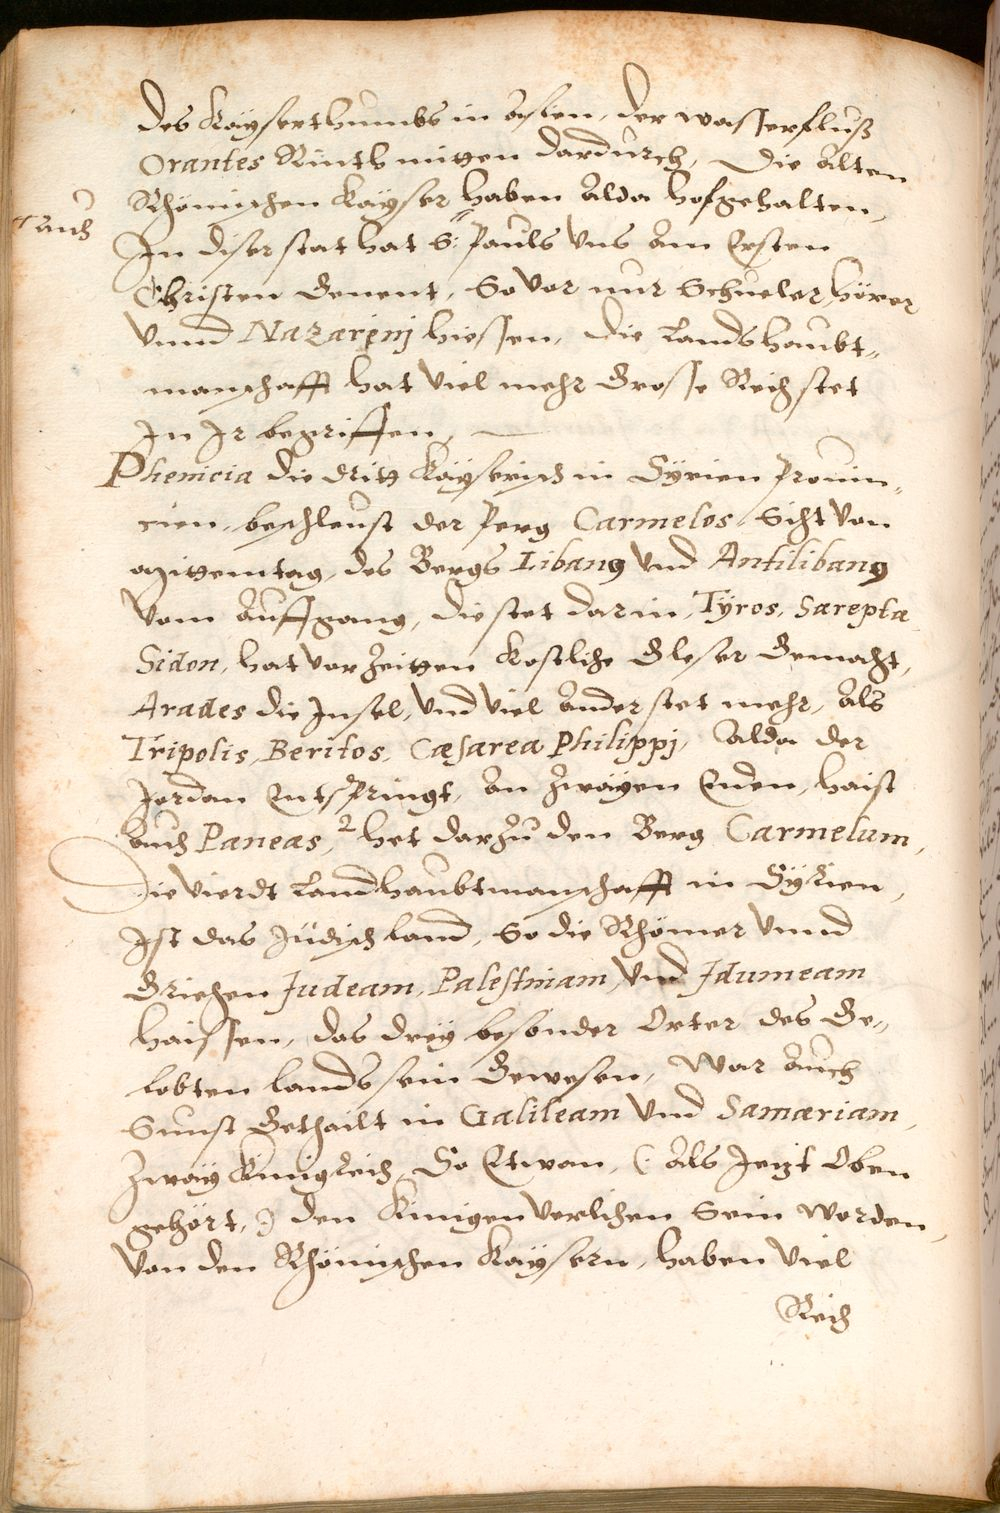 des Kaÿserthumbs in Asien, der wasserfluß
Orantes Rintt mitten dardurch, Die Alten
Rhömischen Kaÿser haben Alda hofgehalten,
auch
In diser stat hat S: Pauls vns am Ersten
Christen Genent, So vor nur Schueler, hörer
vnnd Nazarenj hiessen, die Landshaubt-
manschafft hat viel mehr Grosse Reichstet
In Ir begriffen,
Phenicia die dritt Kaÿserisch in Sÿrien Prouin-
cien, beschleust der Perg Carmelos, Sicht von
Mittemtag, des Bergs Libanus vnd Antilibanus
vom Auffgang, die stet darin, Tÿros, Sarepta
Sidon, hat vor Zeitten Kostliche Gleser Gemacht,
Arades die Insel, vnd viel Ander stet mehr, Als
Tripolis, Beritos, Cæsarea Philippj, Alda der
Jordan Entspringt, An Zwaÿen Enden, haist
Auch Paneas, 2 het darzu den Berg Carmelum,
Die vierdt Landhaubtmanschafft in Sÿrien,
Ist das Jüdisch land, So die Rhömer vnnd
Griechen Judeam, Palestinam, vnd Idumeam
haissen, das dreÿ besonder Orter des Ge-
lobten lands sein Gewesen, War Auch
Sunst Gethailt in Galileam vnd Samariam,
Zwaÿ Kunigreich, So Etwan, (: Als Jetzt Oben
gehört, :) den Kunigen verlichen Sein worden,
von den Rhömischen Kaÿsern, haben viel
Reich